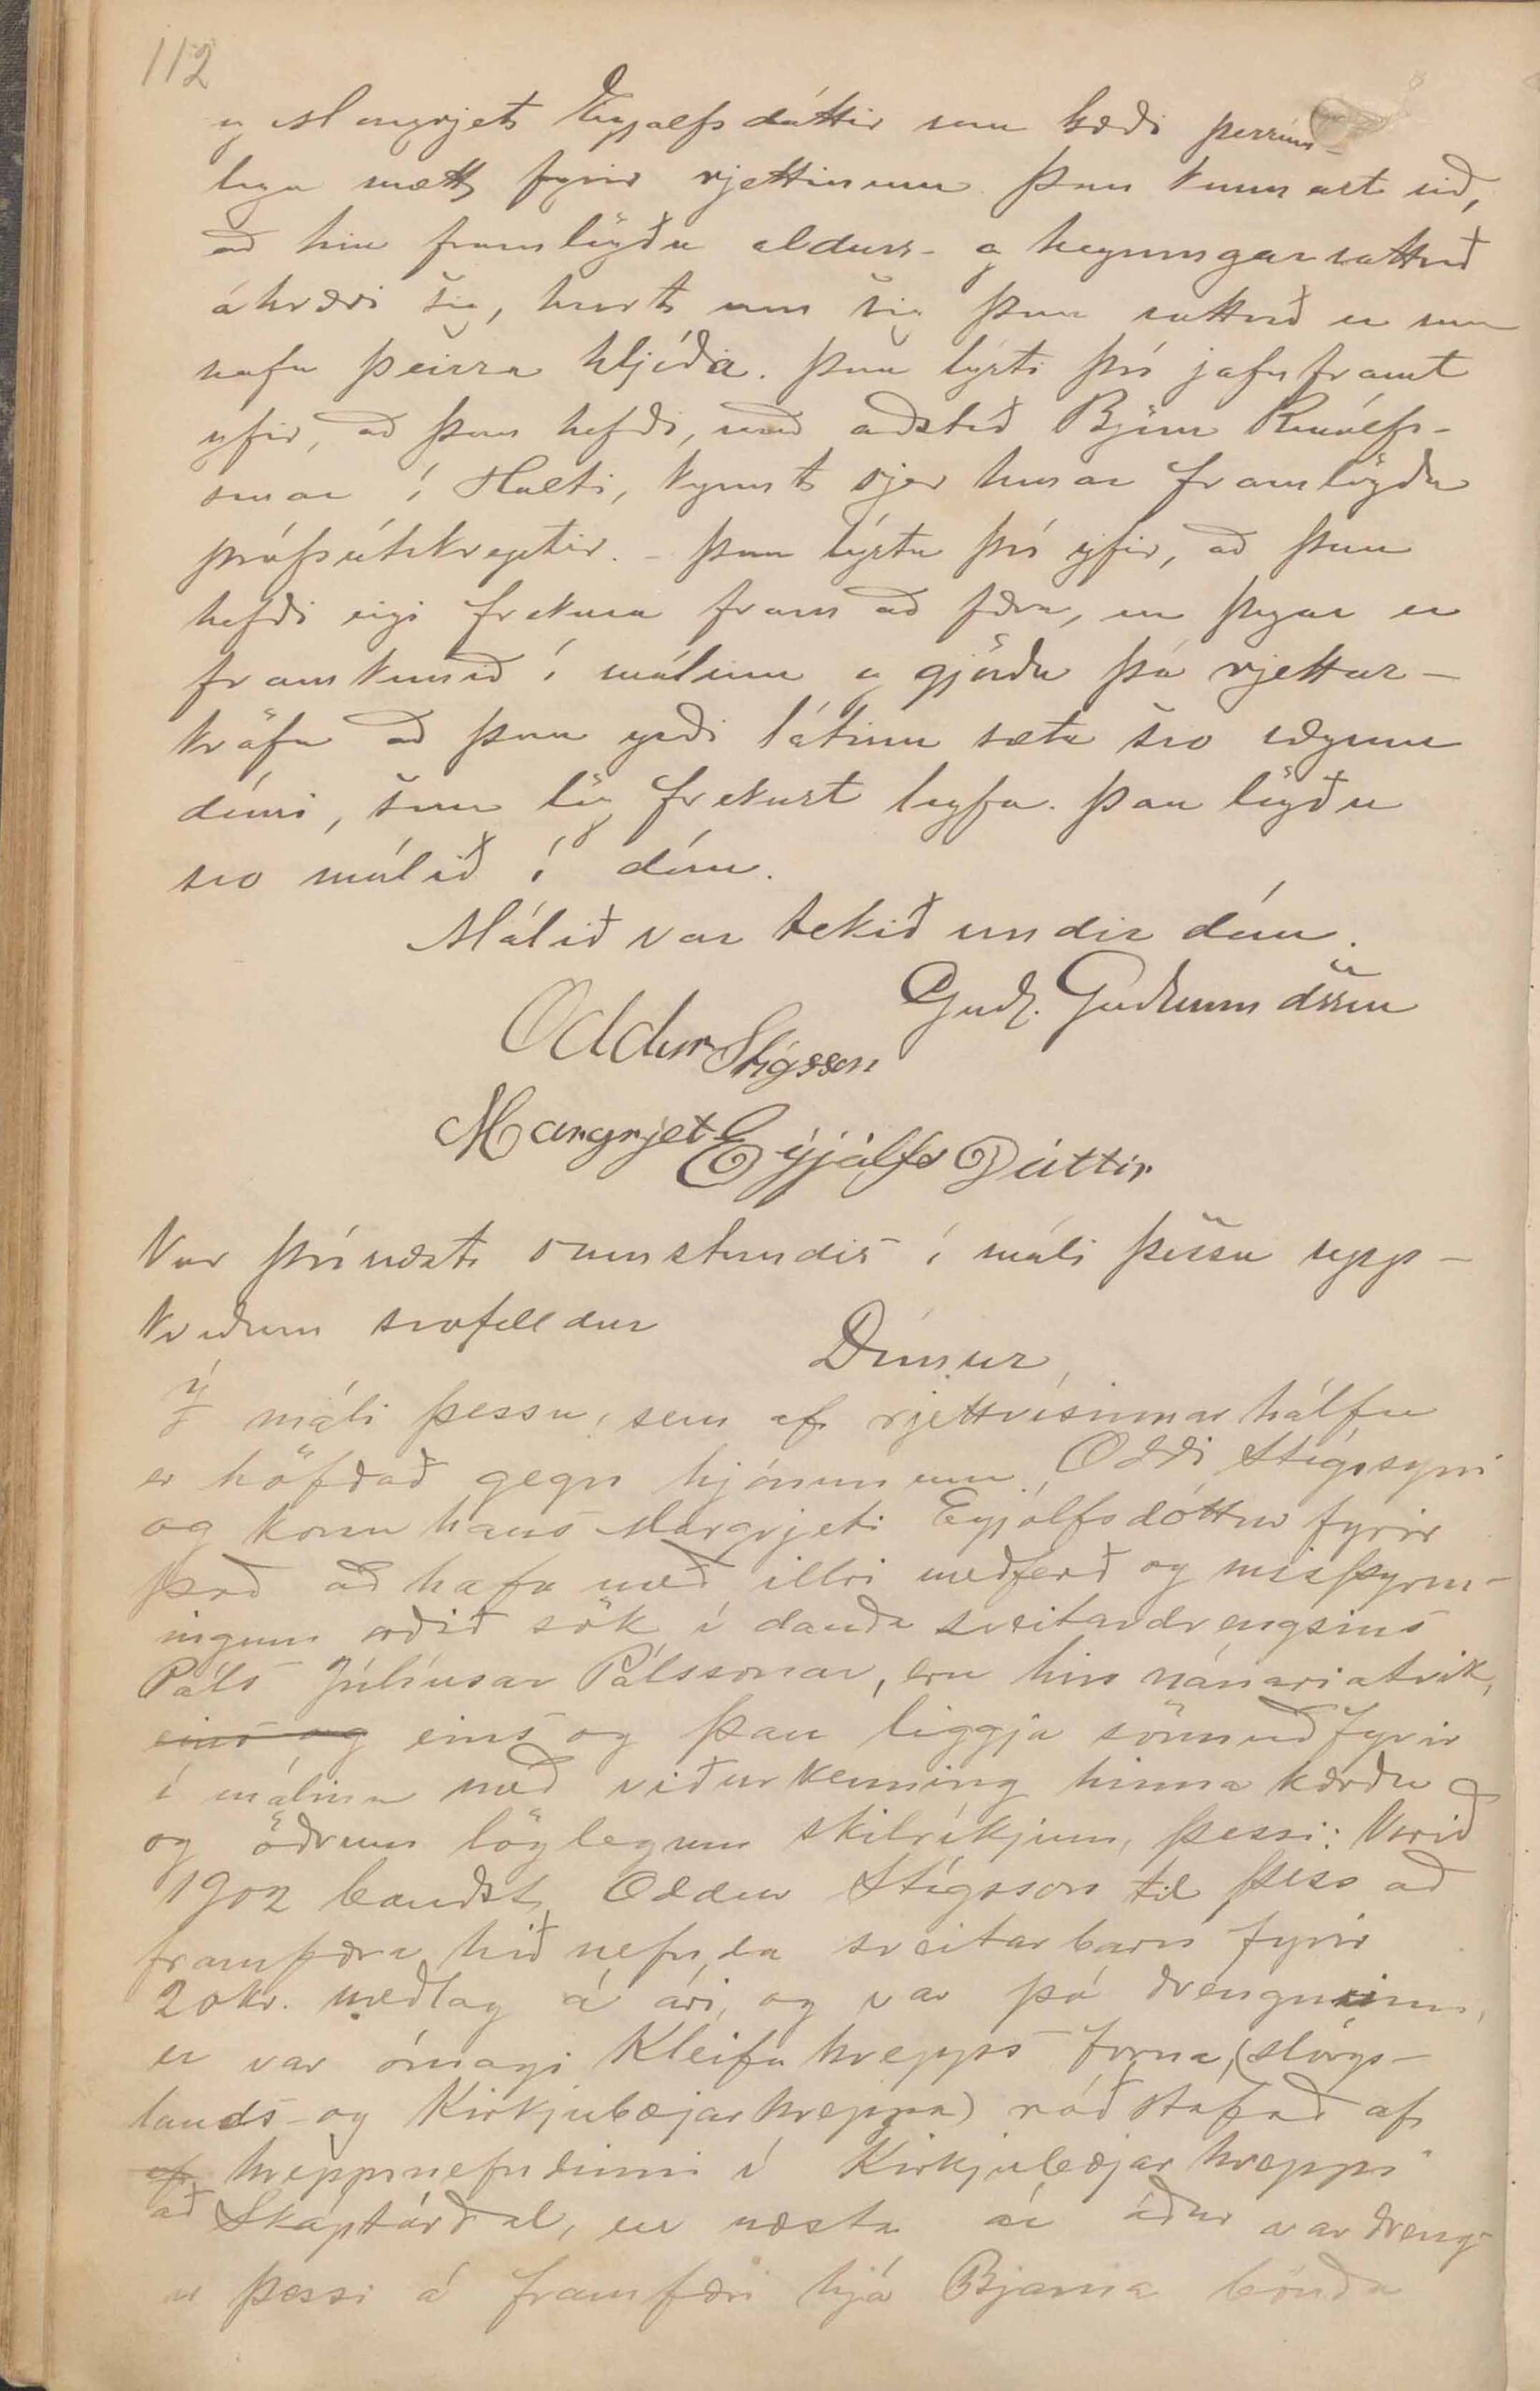 112
og Margrjet Eyjolfsdóttir sem bæði persónu-
lega mætt fyrir rjettinum. Þau kannast við,
að hin framlögðu aldurs- og hegningarvottorð
áhræri sig, hvort um sig þau vottorð er um
nafn þeirra hljóða. Þau lýsti því jafnframt
yfir, að þau hefði, með aðstoð Björns Runólfs-
sonar í Holti, kynnt sjer hinar framlögðu
prófsútskriptir. - Þau lýstu því yfir, að þau
hefði eigi frekara fram að færa, en þegar er
framkomið í málinu og gjörðu þá rjettar-
kröfu að þau yrði látinn sæta svo vægum
dómi, sem lög frekast leyfa. Þau lögðu
svo málið í dóm.
Málið var tekið undir dóm.
Guðl. Guðmundsson
Oddur Stígsson
Margrjet Eÿjálfs Dóttir
Var því næst samstundis í máli þessu upp-
kveðinn svofelldur
Dómur,
Í máli þessu, sem af rjettvísinnar hálfu
er höfðað gegn hjónunum Oddi Stígssyni
og konu hans Margrjeti Eyjólfsdóttur fyrir
það að hafa með illri meðferð og misþyrm-
ingum orðið sök í dauða sveitardrengsins
Páls Júlíusar Pálssonar, eru hin nánari atvik,
eins og eins og þau liggja sönnuð fyrir
í málinu með viðurkenning hinna kærðu
og öðrum löglegum skilríkjum, þessi: Vorið
1902 bauðst Oddur Stígsson til þess að
framfæra hið nefnda sveitarbarn fyrir
20 kr. meðlag á ári, og var þá drengurinn,
er var ómagi Kleifahrepps forna, (Hörgs-
lands- og Kirkjubæjarhreppa) ráðstafað af
af hreppsnefndinni í Kirkjubæjarhreppi
að Skaptárdal, en næsta ár áður var dreng-
ur þessi á framfæri hjá Bjarna bónda